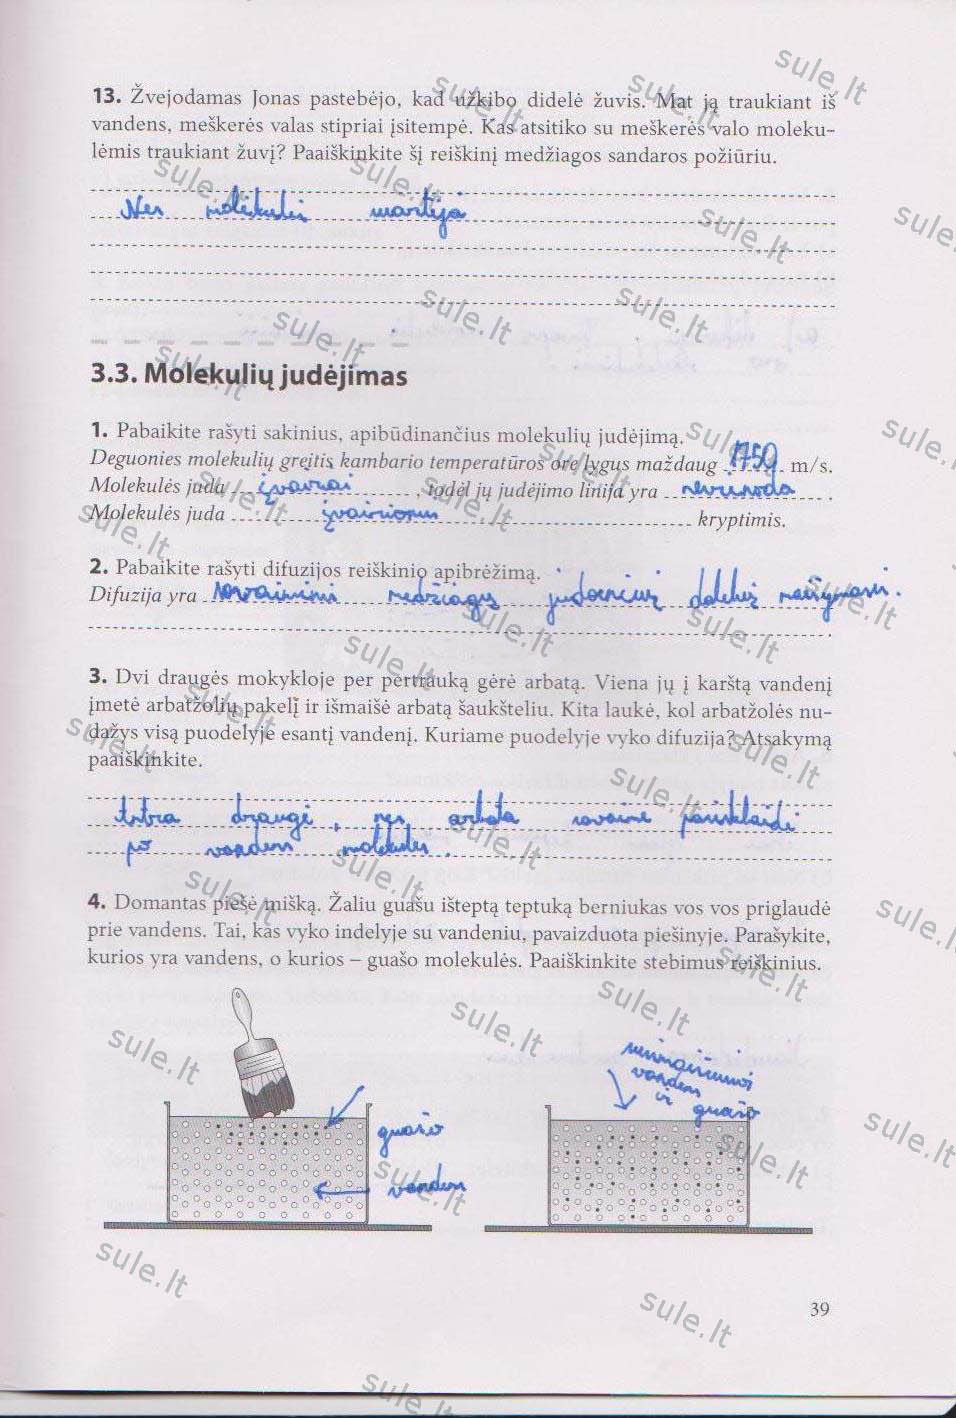 13. Žvejodamas Jonas pastebėjo, kad užkibo didelė žuvis. Mat ją traukiant iš
vandens, meškerės valas stipriai įsitempė. Kas atsitiko su meškerės valo moleku-
lėmis traukiant žuvį? Paaiškinkite šį reiškinį medžiagos sandaros požiūriu.
Nes
3.3. Molekulių judėjimas
1. Pabaikite rašyti sakinius, apibūdinančius molekulių judėjimą.
Deguonies molekulių greitis kambario temperatūros ore lygus maždaug 1750 m/s.
Molekulės juda įvairiai, todėl jų judėjimo linija yra nevienoda.
Molekulės juda įvairiomis kryptimis.
2. Pabaikite rašyti difuzijos reiškinio apibrėžimą.
Difuzija yra savaiminis medžiagų judančių dalelių maišymasis.
3. Dvi draugės mokykloje per pertrauką gėrė arbatą. Viena jų į karštą vandenį
įmetė arbatžolių pakelį ir išmaišė arbatą šaukšteliu. Kita laukė, kol arbatžolės nu-
dažys visą puodelyje esantį vandenį. Kuriame puodelyje vyko difuzija? Atsakymą
paaiškinkite.
antra draugė, nes arbata savaime pasisklaidė
po vandens molekules.
4. Domantas piešė mišką. Žaliu guašu išteptą teptuką berniukas vos vos priglaudė
prie vandens. Tai, kas vyko indelyje su vandeniu, pavaizduota piešinyje. Parašykite,
kurios yra vandens, o kurios – guašo molekulės. Paaiškinkite stebimus reiškinius.
guašo
vandens
vandens
ir guašo
39
sule.lt